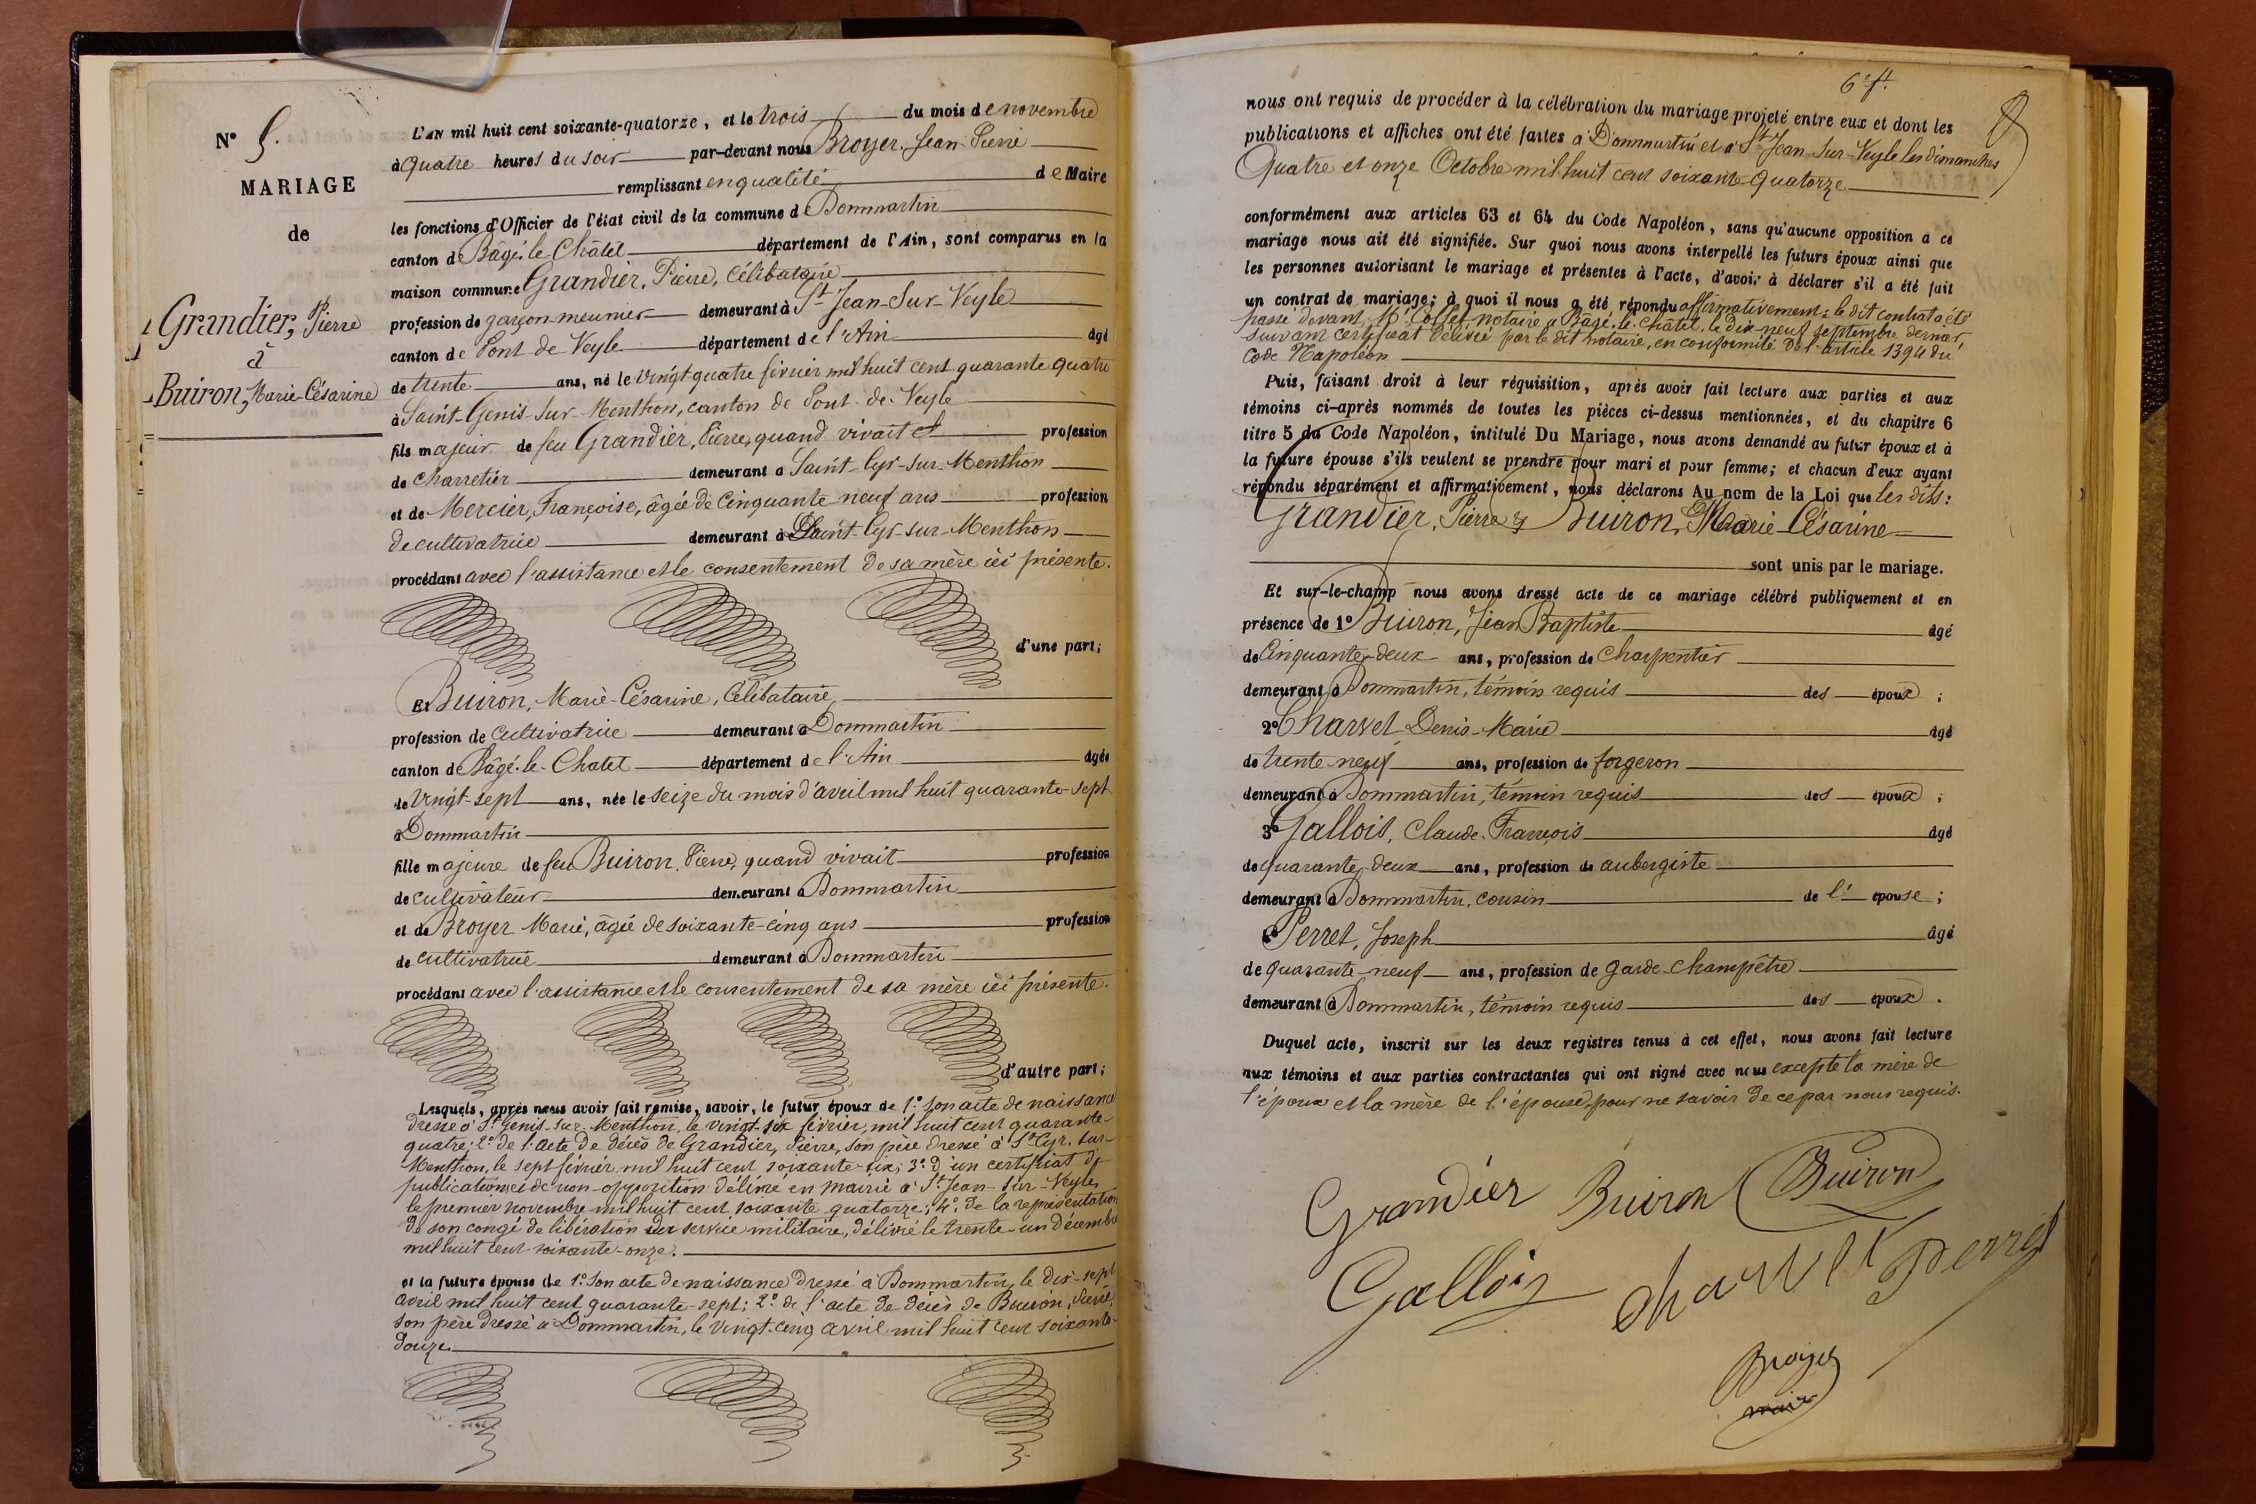 N° 5.
MARIAGE
de
Grandier, Pierre
à
Buiron, Marie-Césarine
L'AN mil huit cent soixante-quatorze, et le trois du mois de novembre
à quatre heures du soir par-devant nous Broyer, Jean-Pierre
remplissant en qualité de Maire
les fonctions d'Officier de l'état civil de la commune de Dommartin
canton de Bâgé-le-Châtel département de l'Ain, sont comparus en la
maison commune Grandier, Pierre, Célibataire
profession de garçon-meunier demeurant à St Jean-Sur-Veyle
canton de Pont de Veyle département de l'Ain âgé
de trente ans, né le vingt-quatre février mil huit cent quarante quatre
à Saint-Genis-Sur-Menthon, canton de Pont-de-Veyle
fils majeur de feu Grandier, Pierre, quand vivait profession
de charretier demeurant à Saint-Cyr-sur-Menthon
et de Mercier, Françoise, âgée de Cinquante neuf ans profession
de cultivatrice demeurant à Saint-Cyr-sur-Menthon
procédant avec l'assistance et le consentement de sa mère ici présente.
d'une part;
Et Buiron, Marie-Césarine, Célibataire
profession de cultivatrice demeurant à Dommartin
canton de Bâgé-le-Chatel département de l'Ain âgée
de vingt-sept ans, née le seize du mois d'avril mil huit quarante-sept
à Dommartin
fille majeure de feu Buiron, Pierre, quand vivait profession
de cultivateur demeurant à Dommartin
et de Broyer Marie, âgée de soixante-cinq ans profession
de cultivatrice demeurant à Dommartin
procédant avec l'assistance et le consentement de sa mère ici présente.
d'autre part;
Lesquels, après nous avoir fait remise, savoir, le futur époux de 1.° son acte de naissance
dressé à St Genis-sur-Menthon, le vingt-six février, mil huit cent quarante-
quatre; 2.° de l'acte de décès de Grandier, Pierre, son père dressé à St Cyr-sur-
Menthon, le sept février mil huit cent soixante-six; 3.° d'un certificat de
publications et de non-opposition délivré en mairie à St Jean-sur-Veyle,
le premier novembre mil huit cent soixante-quatorze; 4.° de la représentation
de son congé de libération du service militaire, délivré le trente-un décembre
mil huit cent soixante-onze.
et la future épouse de 1.° Son acte de naissance dressé à Dommartin, le dix-sept
avril mil huit cent quarante-sept; 2.° de l'acte de décès de Buiron, Pierre,
son père dressé à Dommartin, le vingt-cinq avril mil huit cent soixante-
douze.
6e ft.
nous ont requis de procéder à la célébration du mariage projeté entre eux et dont les
publications et affiches ont été faites à Dommartin et à St Jean-sur-Veyle les dimanches
Quatre et onze Octobre mil huit cent soixante-quatorze
conformément aux articles 63 et 64 du Code Napoléon, sans qu'aucune opposition à ce
mariage nous ait été signifiée. Sur quoi nous avons interpellé les futurs époux ainsi que
les personnes autorisant le mariage et présentes à l'acte, d'avoir à déclarer s'il a été fait
un contrat de mariage; à quoi il nous a été répondu affirmativement: le dit contrat a été
passé devant Me notaire à Bâgé-le-Châtel, le dix-neuf septembre dernier,
suivant certificat délivré par le dit notaire, en conformité de l'article 1394 du
Code Napoléon
Puis, faisant droit à leur réquisition, après avoir fait lecture aux parties et aux
témoins ci-après nommés de toutes les pièces ci-dessus mentionnées, et du chapitre 6
titre 5 du Code Napoléon, intitulé Du Mariage, nous avons demandé au futur époux et à
la future épouse s'ils veulent se prendre pour mari et pour femme; et chacun d'eux ayant
répondu séparément et affirmativement, nous déclarons Au nom de la Loi que les dits:
Grandier, Pierre & Buiron, Marie-Césarine
sont unis par le mariage.
Et sur-le-champ nous avons dressé acte de ce mariage célébré publiquement et en
présence de 1° Buiron, Jean Baptiste âgé
de Cinquante-deux ans, profession de Charpentier
demeurant à Dommartin, témoin requis des époux;
2° Charvet Denis-Marie âgé
de trente-neuf ans, profession de forgeron
demeurant à Dommartin, témoin requis des époux;
3° Gallois, Claude-François âgé
de quarante-deux ans, profession de aubergiste
demeurant à Dommartin, cousin de l' épouse;
4° Perret, Joseph âgé
de quarante-neuf ans, profession de garde-champêtre
demeurant à Dommartin, témoin requis des époux.
Duquel acte, inscrit sur les deux registres tenus à cet effet, nous avons fait lecture
aux témoins et aux parties contractantes qui ont signé avec nous excepté la mère de
l'époux et la mère de l'épouse, pour ne savoir de ce par nous requis.
Grandier Buiron Buiron
Gallois Charvet Perret
Broyer
maire